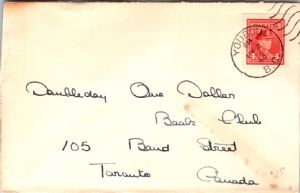 Doubleday One Dollar
Book Club
105 Bond Street
Toronto Canada